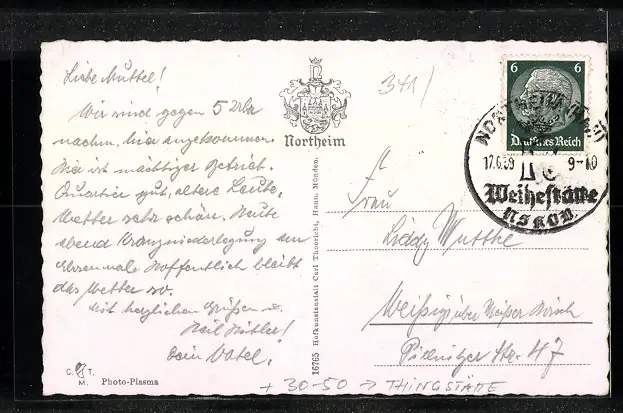 Liebe Muttel!
Wir sind gegen 5 Uhr
nachm. hier angekommen.
Hier ist mächtiger Betrieb.
Quartier gut, ältere Leute,
Wetter sehr schön. Heute
abend Kranzniederlegung am
Ehrenmale. Hoffentlich bleibt
das Wetter so.
Mit herzlichen Grüßen u.
Heil Hitler!
Dein Vatel.
C. T.
M. Photo-Plasma
Northeim
16765 Hofkunstanstalt Carl Thoericht, Hann. Münden.
341/
6 6
Deutsches Reich
NORTHEIM (HAN)
17.6.39 9-10
Weihestätte
NSKOV.
Frau
Liddy Wuttke
Weißig über
Pillnitzer Str. 47
+ 30-50 → THINGSTÄTTE